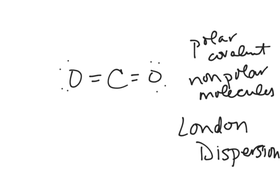 polar
covalent
O = C = O
nonpolar
molecules
London
Dispersion